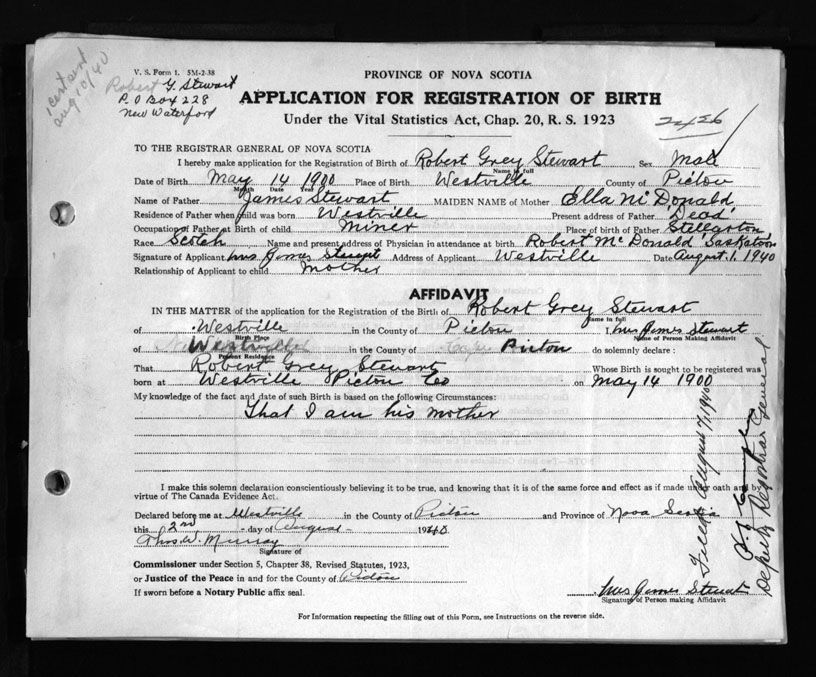 V. S. Form 1. 5M-2-38
Robert G. Stewart
P. O Box 228
New Waterford
1 cert sent
aug 10/40
PROVINCE OF NOVA SCOTIA
APPLICATION FOR REGISTRATION OF BIRTH
Under the Vital Statistics Act, Chap. 20, R. S. 1923
2426
TO THE REGISTRAR GENERAL OF NOVA SCOTIA
I hereby make application for the Registration of Birth of Robert Grey Stewart Sex Male
Name in full
Date of Birth May 14 1900 Place of Birth Westville County of Pictou
Month Date Year
Name of Father James Stewart MAIDEN NAME of Mother Ella McDonald
Residence of Father when child was born Westville Present address of Father 'Dead'
Occupation of Father at Birth of child miner Place of birth of Father Stellarton
Race Scotch Name and present address of Physician in attendance at birth Robert McDonald Saskatoon
Signature of Applicant Mrs James Stewart Address of Applicant Westville Date August. 1. 1940
Relationship of Applicant to child mother
AFFIDAVIT
IN THE MATTER of the application for the Registration of the Birth of Robert Grey Stewart
Name in full
of Westville in the County of Pictou I, Mrs James Stewart
Birth Place Name of Person Making Affidavit
of Westville in the County of Pictou do solemnly declare:
Present Residence
That Robert Grey Stewart Whose Birth is sought to be registered was
born at Westville Pictou Co on May 14 1900
My knowledge of the fact and date of such Birth is based on the following Circumstances:
That I am his mother
I make this solemn declaration conscientiously believing it to be true, and knowing that it is of the same force and effect as if made under oath and by
virtue of The Canada Evidence Act.
Declared before me at Westville in the County of Pictou and Province of Nova Scotia
this 2nd day of August 1940
Thos. W. Murray
Signature of
Commissioner under Section 5, Chapter 38, Revised Statutes, 1923,
or Justice of the Peace in and for the County of Pictou
If sworn before a Notary Public affix seal.
Mrs James Stewart
Signature of Person making Affidavit
For Information respecting the filling out of this Form, see Instructions on the reverse side.
Filed August 7, 1940
Deputy Registrar General